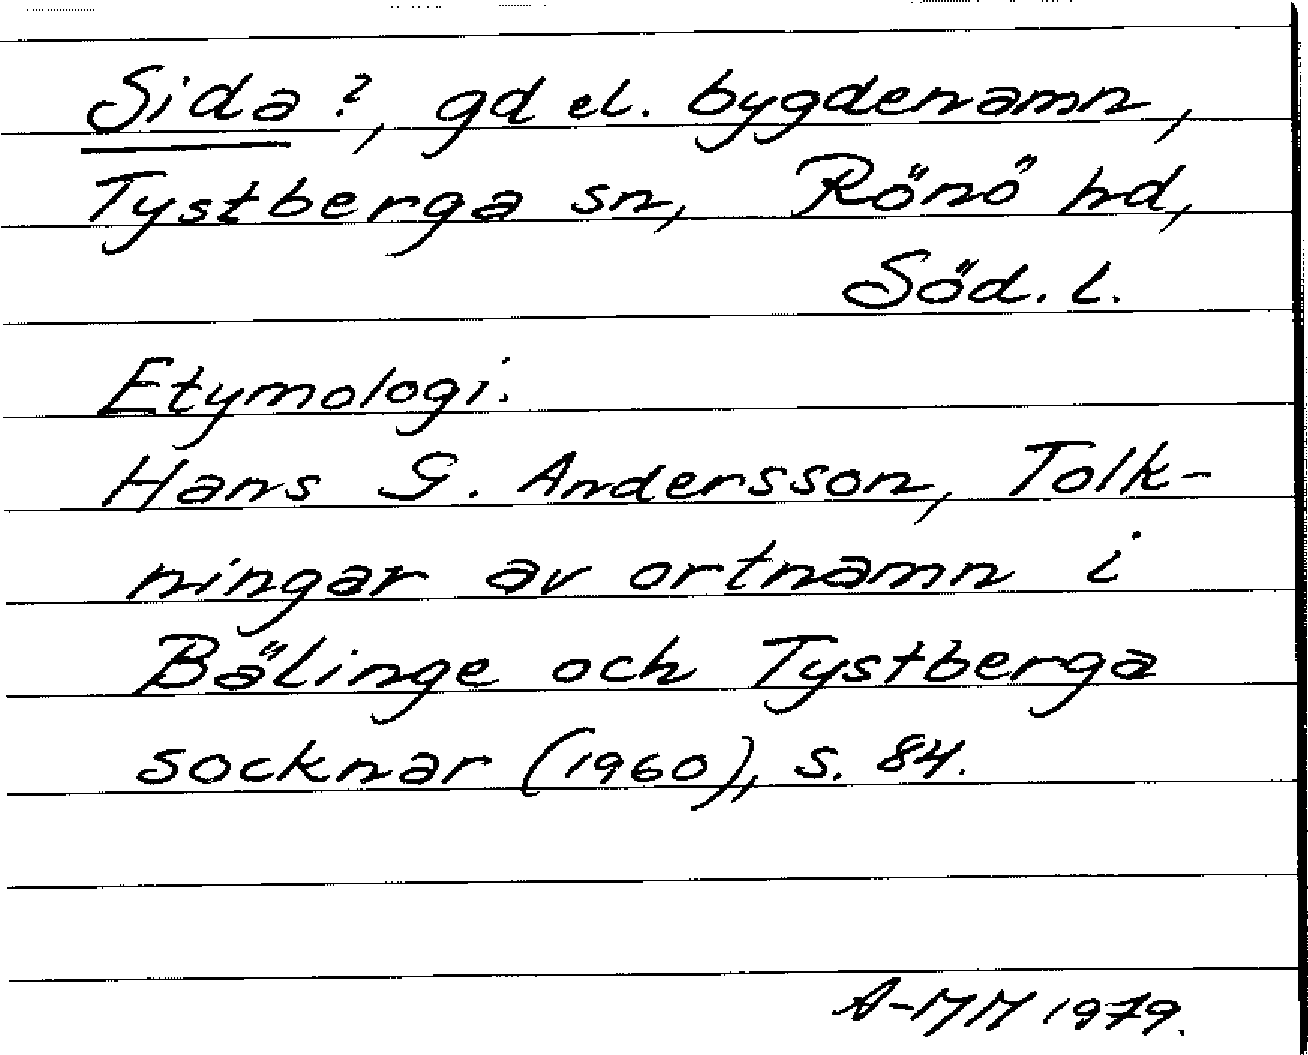 Sida ?, gd el. bygdenamn,
Tystberga sn, Rönö hd,
Söd. l.
Etymologi.
Hans G. Andersson, Tolk-
ningar av ortnamn i
Bälinge och Tystberga
socknar (1960), s. 84.
A-MM 1979.